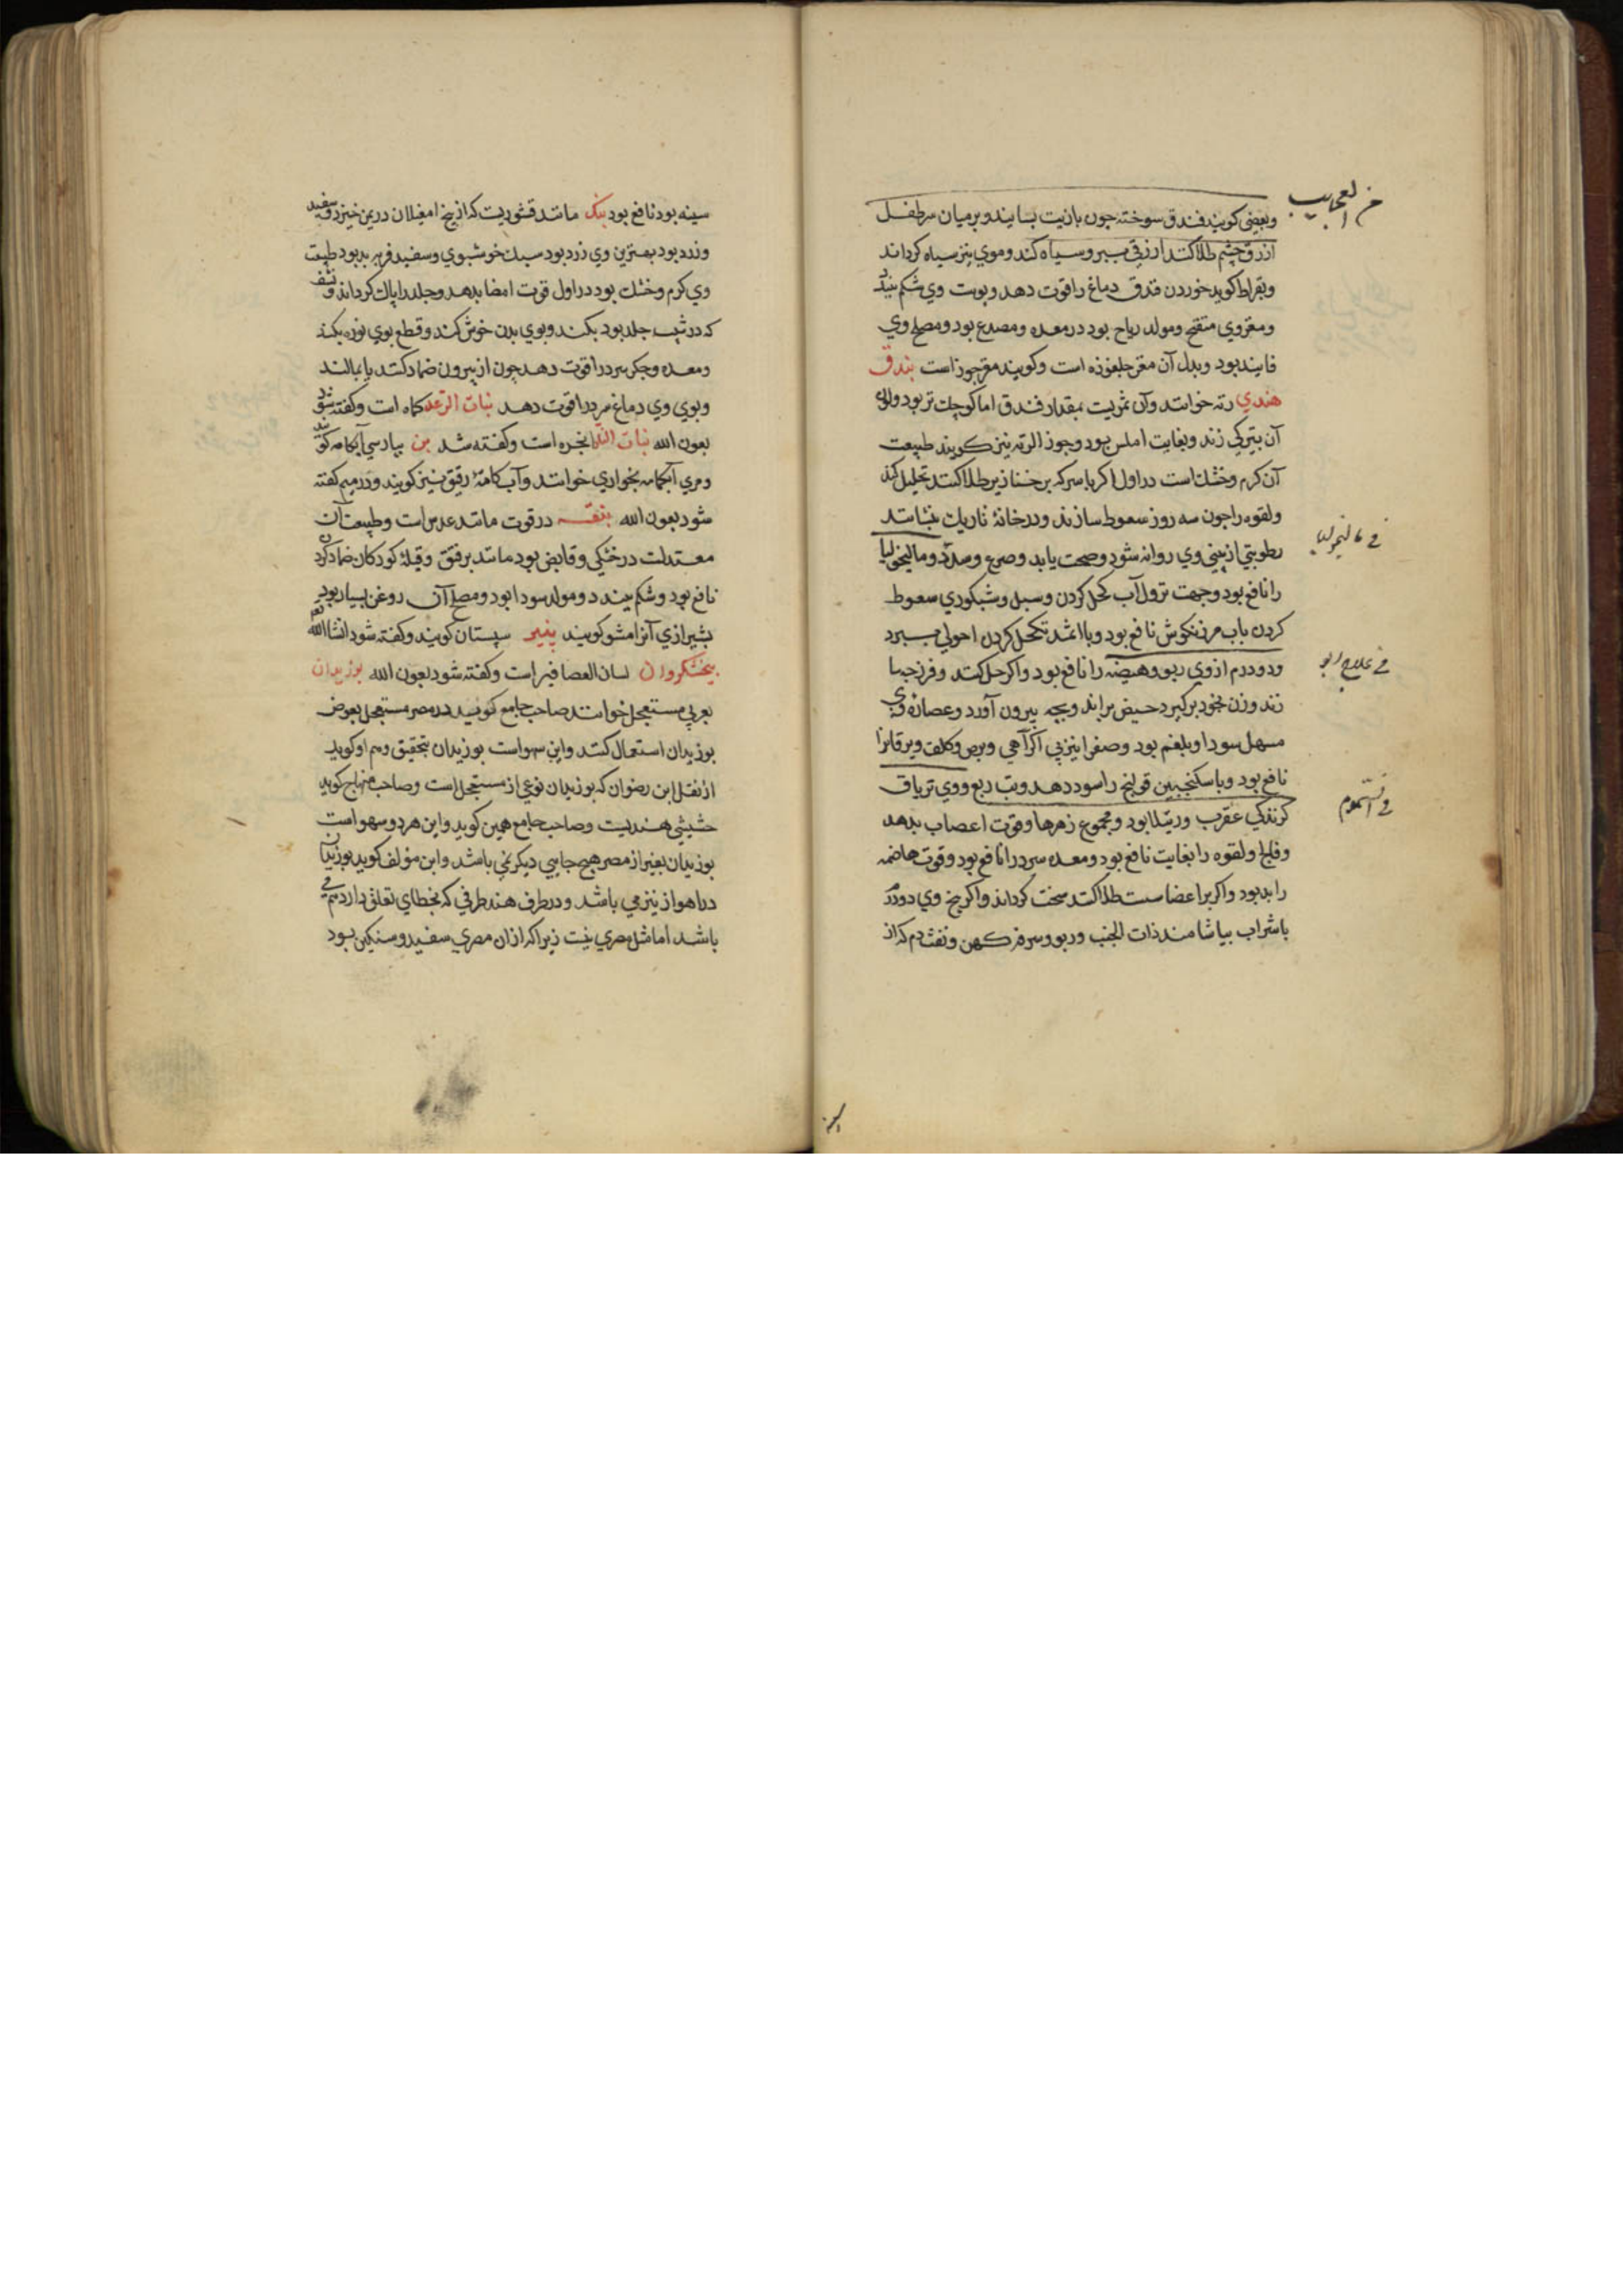 من العجایب
وبعضی کویند فندق سوخته جون بازیت بسایند وبرمیان سر طفل
ازرق چشم طلا کنند ازرقی ببرد وسیاه کند وموی نیز سیاه کرداند
وبقراط کوید خوردن فندق دماغ را قوت دهد وپوست وی شکم ببندد
ومغز وی منفخ ومولد ریاح بود در معده ومصدع بود ومصلح وی
فانید بود وبدل آن مغز جلغوزه است وکویند مغز جوز است بندق
هندی رته خوانند وآن ثمریست بمقدار فندق اما کوچک تر بود ولون
آن بتیرکی زند وبغایت املس بود وجوز الرته نیز کویند طبیعت
آن کرم وخشک است در اول اکر با سرکه بر خنازیر طلا کنند تحلیل کند
ولقوه را جون سه روز سعوط سازند ودر خانهٔ تاریک بنشانند
فی مالیخولیا
رطوبتی از بینی وی روانه شود وصحت یابد وصرع وسدد ومالیخولیا
را نافع بود وجهت نزول آب کحل کردن وسبل وشبکوری سعوط
کردن باب مرزنکوش نافع بود وبا اثمد تکحل کردن احولی ببرد
فی علاج ربو
ودو درم از وی ربو وهیضه را نافع بود واکر حل کنند وفرزجها
زند وزن بخود برکیرد حیض براند وبچه بیرون آورد وعصارهٔ وی
مسهل سودا وبلغم بود وصفرا نیز بی اکراهی وبرص وکلف ویرقانرا
نافع بود وبا سکنجبین قولنج را سود دهد وتب ربع ووی تریاق
فی السموم
کزندکی عقرب ورتیلا بود ومجموع زهرها وقوت اعصاب بدهد
وفالج ولقوه را بغایت نافع بود ومعده سرد را نافع بود وقوت هاضمه
را بد بود واکر بر اعضا سست طلا کنند سخت کرداند واکر بیخ وی دو درم
با شراب بیاشامند ذات الجنب وربو وسرفه کهن ونفث دم که از
سینه بود نافع بود بنک مانند قشوریست که از بیخ امغیلان در یمن خیزد وسفید
وزرد بود بهترین وی زرد بود سبک خوشبوی وسفید فربه بد بود طبیعت
وی کرم وخشک بود در اول قوت امضا بدهد وجلد را پاک کرداند ونشف
که در شیب جلد بود بکند وبوی بدن خوش کند وقطع بوی نوره بکند
ومعده وجکر سرد را قوت دهد چون از بیرون ضماد کنند یا بمالند
وبوی وی دماغ سرد را قوت دهد نبات الرعد کماه است وکفته شود
بعون الله نبات النار انجره است وکفته شد بن بپارسی آبکامه کویند
ومری آبکامه بخواری خوانند وآب کامهٔ رقیق نیز کویند ودر میم کفته
شود بعون الله بنقسه در قوت مانند عدس است وطبیعت آن
معتدلست در خشکی وقابض بود مانند بر فتق وقیلهٔ کودکان ضماد کردن
نافع بود وشکم ببندد ومولد سودا بود ومصلح آن روغن بسیار بود
بشیرازی آنرا مشو کویند بنیر سپستان کویند وکفته شود انشاالله
بنجشکروان لسان العصافیر است وکفته شود بعون الله بوزیدان
بعربی مستعجل خوانند صاحب جامع کوید در مصر مستعجل بعوض
بوزیدان استعمال کنند واین سهو است بوزیدان بتحقیق وهم او کوید
از نقل ابن رضوان که بوزیدان نوعی از مستعجل است وصاحب منهاج کوید
خشبی هندیست وصاحب جامع همین کوید واین هر دو سهو است
بوزیدان بغیر از مصر هیچ جایی دیکر نمی باشد وابن مؤلف کوید بوزیدان
در اهواز نیز می باشد ودر طرف هند طرفی که بخطای تعلق دارد هم می
باشد اما مثل مصری نیست زیرا که از ان مصری سفید وسنکین بود